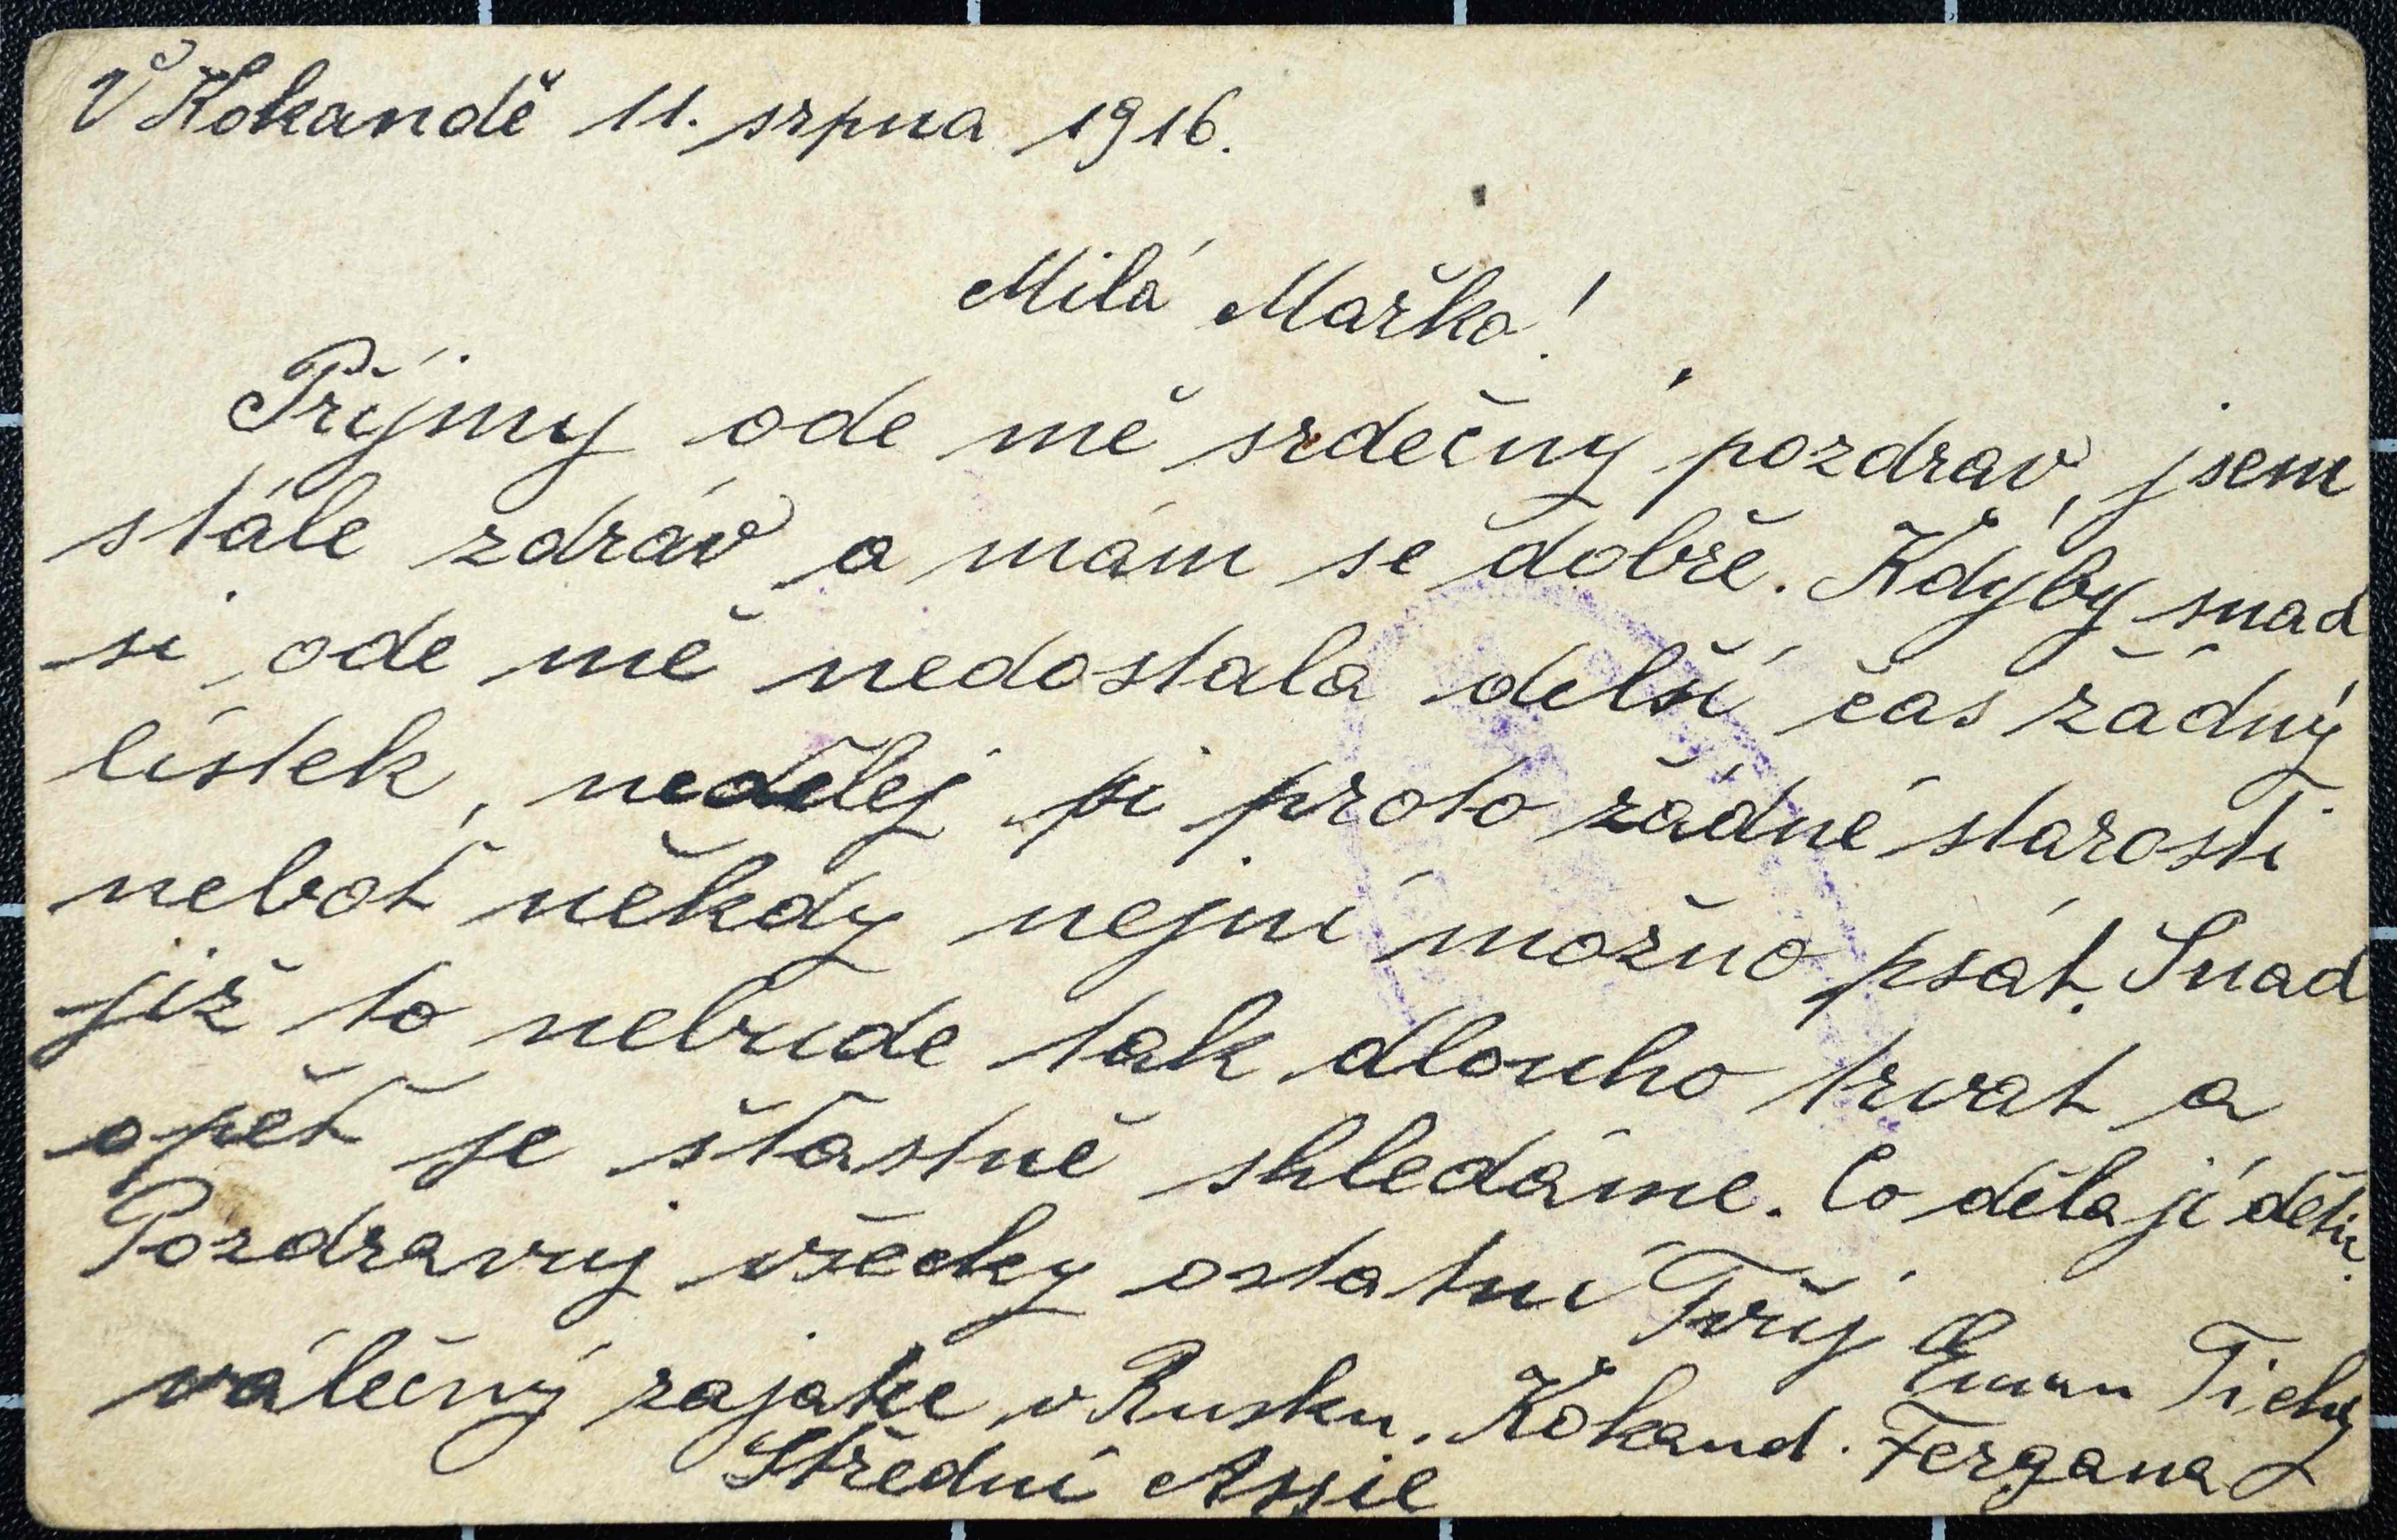 V Kokandě 11. srpna 1916.
Milá Mařko!
Príjmy ode mě srdečný pozdrav, jsem
stále zdráv a mám se dobře. Kdyby snad
si ode mě nedostala delší čas žádný
lístek, nedělej si proto žádné starosti
neboť někdy nejní možno psát. Snad
již to nebude tak dlouho trvat a
opět se šťastně shledáme. Co dělají děti.
Pozdravuj všecky ostatní Tvůj
Eman Tichy
válečný zajatec v Rusku. Kokand. Fergana
Střední Assie